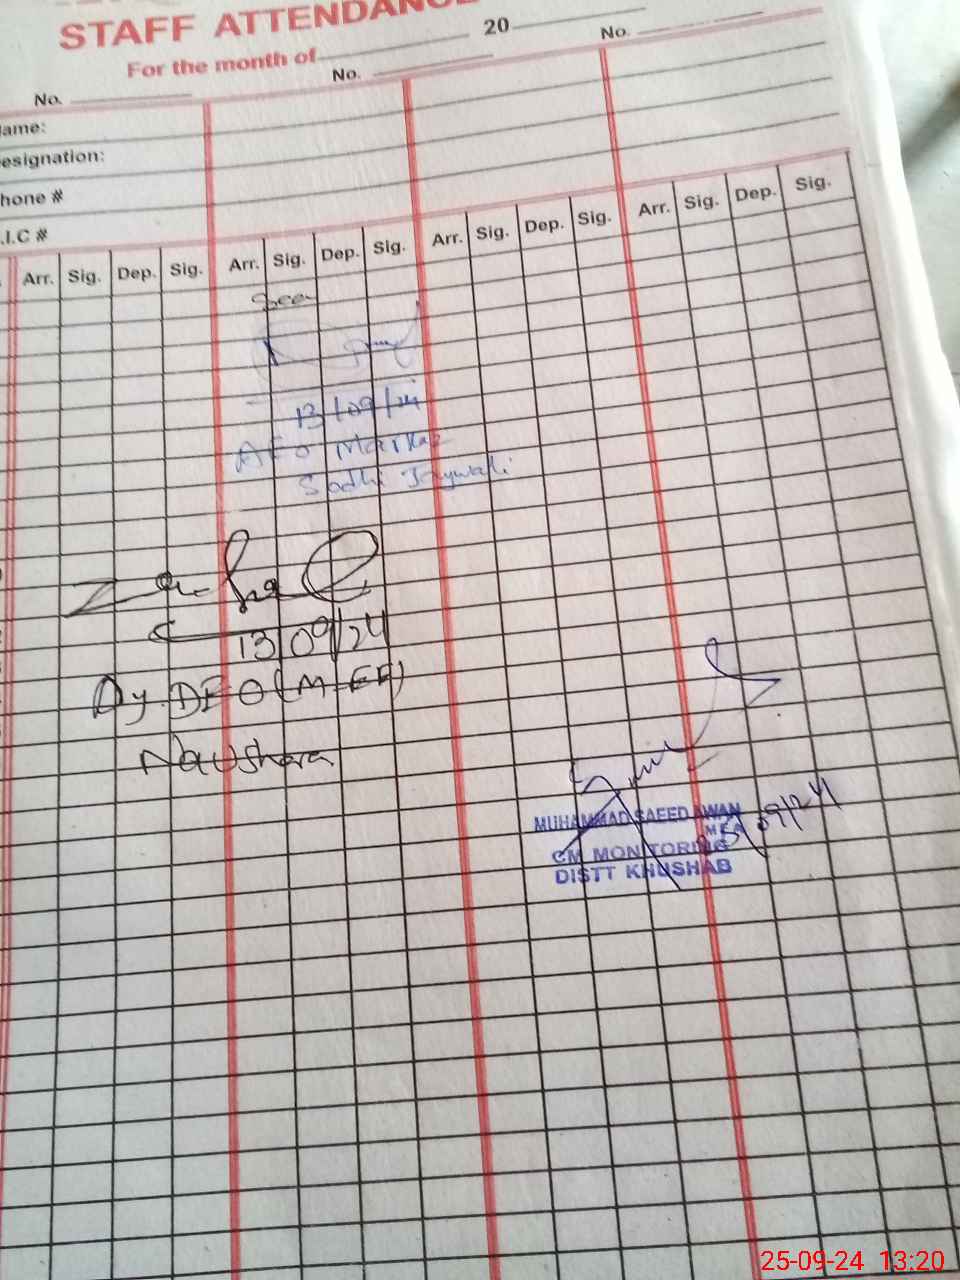 STAFF ATTENDANCE
For the month of 20
No. No. No.
ame:
esignation:
hone #
.I.C #
Arr. Sig. Dep. Sig. Arr. Sig. Dep. Sig. Arr. Sig. Dep. Sig. Arr. Sig. Dep. Sig.
Seen
13/09/24
AEO Markaz
Sodhi Jaywali
13/09/24
Dy. DEO (M-EE)
Naushera
MUHAMMAD SAEED AWAN
09/24
CM MONITORING
DISTT KHUSHAB
25-09-24 13:20